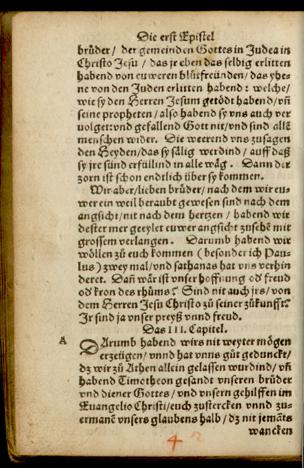 Die erst Epistel
brüder / der gemeinden Gottes in Judea in
Christo Jesu / das jr eben das selbig erlitten
habend von euweren blůtfreünden / das yhe-
ne von den Juden erlitten habend : welche /
wie sy den Herren Jesum getödt habend / vñ
seine propheten / also habend sy vns auch ver
uolget : vnd gefallend Gott nit / vnd sind allẽ
menschen wider. Die weerend vns zusagen
den Heyden / das sy sälig werdind / auff daß
sy jre sünd erfüllind in alle wäg. Dann der
zorn ist schon endtlich über sy kommen.
Wir aber / lieben brüder / nach dem wir eu-
wer ein weil beraubt gewesen sind nach dem
angsicht / nit nach dem hertzen / habend wir
dester mer geeylet euwer angsicht zusehẽ mit
grossem verlangen. Darumb habend wir
wöllen zů euch kommen ( besonder ich Pau-
lus ) zwey mal / vnd sathanas hat vns verhin
deret. Dañ wär ist vnser hoffnung od freud
od kron des rhůms ? Sind nit auch jrs / von
dem Herren Jesu Christo zů seiner zůkunfft?
Jr sind ja vnser preyß vnnd freud.
Das III. Capitel.
A
Darumb habend wirs nit weyter mögen
erzeügen / vnnd hat vnns gůt gedunckt /
dz wir zů Athen allein gelassen wurdind / vñ
habend Timotheon gesandt vnseren brůder
vnd diener Gottes / vnd vnsern gehilffen im
Euangelio Christi / euch zustercken vnnd zu-
ermanẽ vnsers glaubens halb / dz nit jemãts
wancken
4